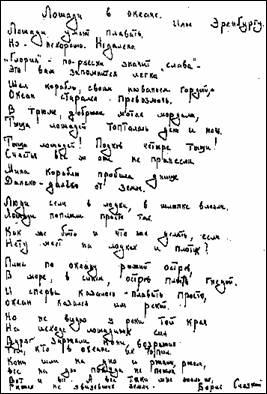 Лошади в океане.
Илье Эренбургу.
Лошади умеют плавать,
Но - нехорошо. Недалеко.
"Глория" - по-русски значит "слава" -
Это вам запомнится легко
Шёл корабль, своим названьем гордый,
Океан стараясь превозмочь.
В трюме, добрыми мотая мордами,
Тыща лошадей топталась день и ночь.
Тыща лошадей! Подков четыре тыщи!
Счастья все ж они не принесли.
Мина кораблю пробила днище
Далеко-далёко от земли.
Люди сели в лодки, в шлюпки влезли.
Лошади поплыли просто так.
Как же быть и что же делать, если
Нету мест на лодках и плотах?
Плыл по океану рыжий остров.
В море, в синем, остров плыл гнедой.
И сперва казалось - плавать просто,
Океан казался им рекой.
Но не видно у реки той края
На исходе лошадиных сил
Вдруг заржали кони, возражая
Тем, кто в океане их топил.
Кони шли на дно и ржали, ржали,
Все на дно покуда не пошли.
Вот и всё. А всё-таки мне жаль их,
Рыжих не увидевших земли.
Борис Слуцкий